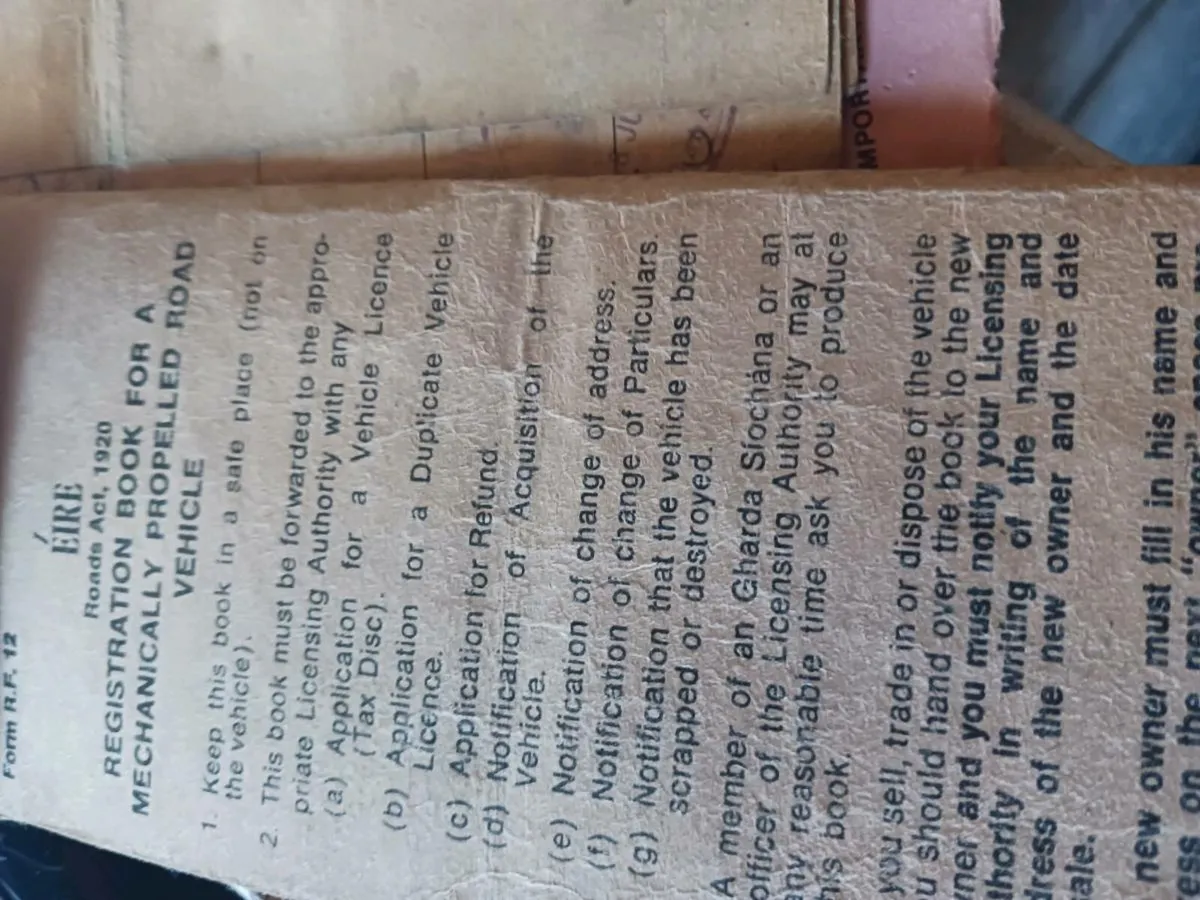 Form R.F. 12
ÉIRE
Roads Act, 1920
REGISTRATION BOOK FOR A
MECHANICALLY PROPELLED ROAD
VEHICLE
1. Keep this book in a safe place (not on
the vehicle).
2. This book must be forwarded to the appro-
priate Licensing Authority with any
(a) Application for a Vehicle Licence
(Tax Disc).
(b) Application for a Duplicate Vehicle
Licence.
(c) Application for Refund.
(d) Notification of Acquisition of the
Vehicle.
(e) Notification of change of address.
(f) Notification of change of Particulars.
(g) Notification that the vehicle has been
scrapped or destroyed.
A member of an Gharda Síochána or an
officer of the Licensing Authority may at
any reasonable time ask you to produce
this book.
you sell, trade in or dispose of the vehicle
u should hand over the book to the new
wner and you must notify your Licensing
thority in writing of the name and
dress of the new owner and the date
sale.
new owner must fill in his name and
ess on the next
MPOR